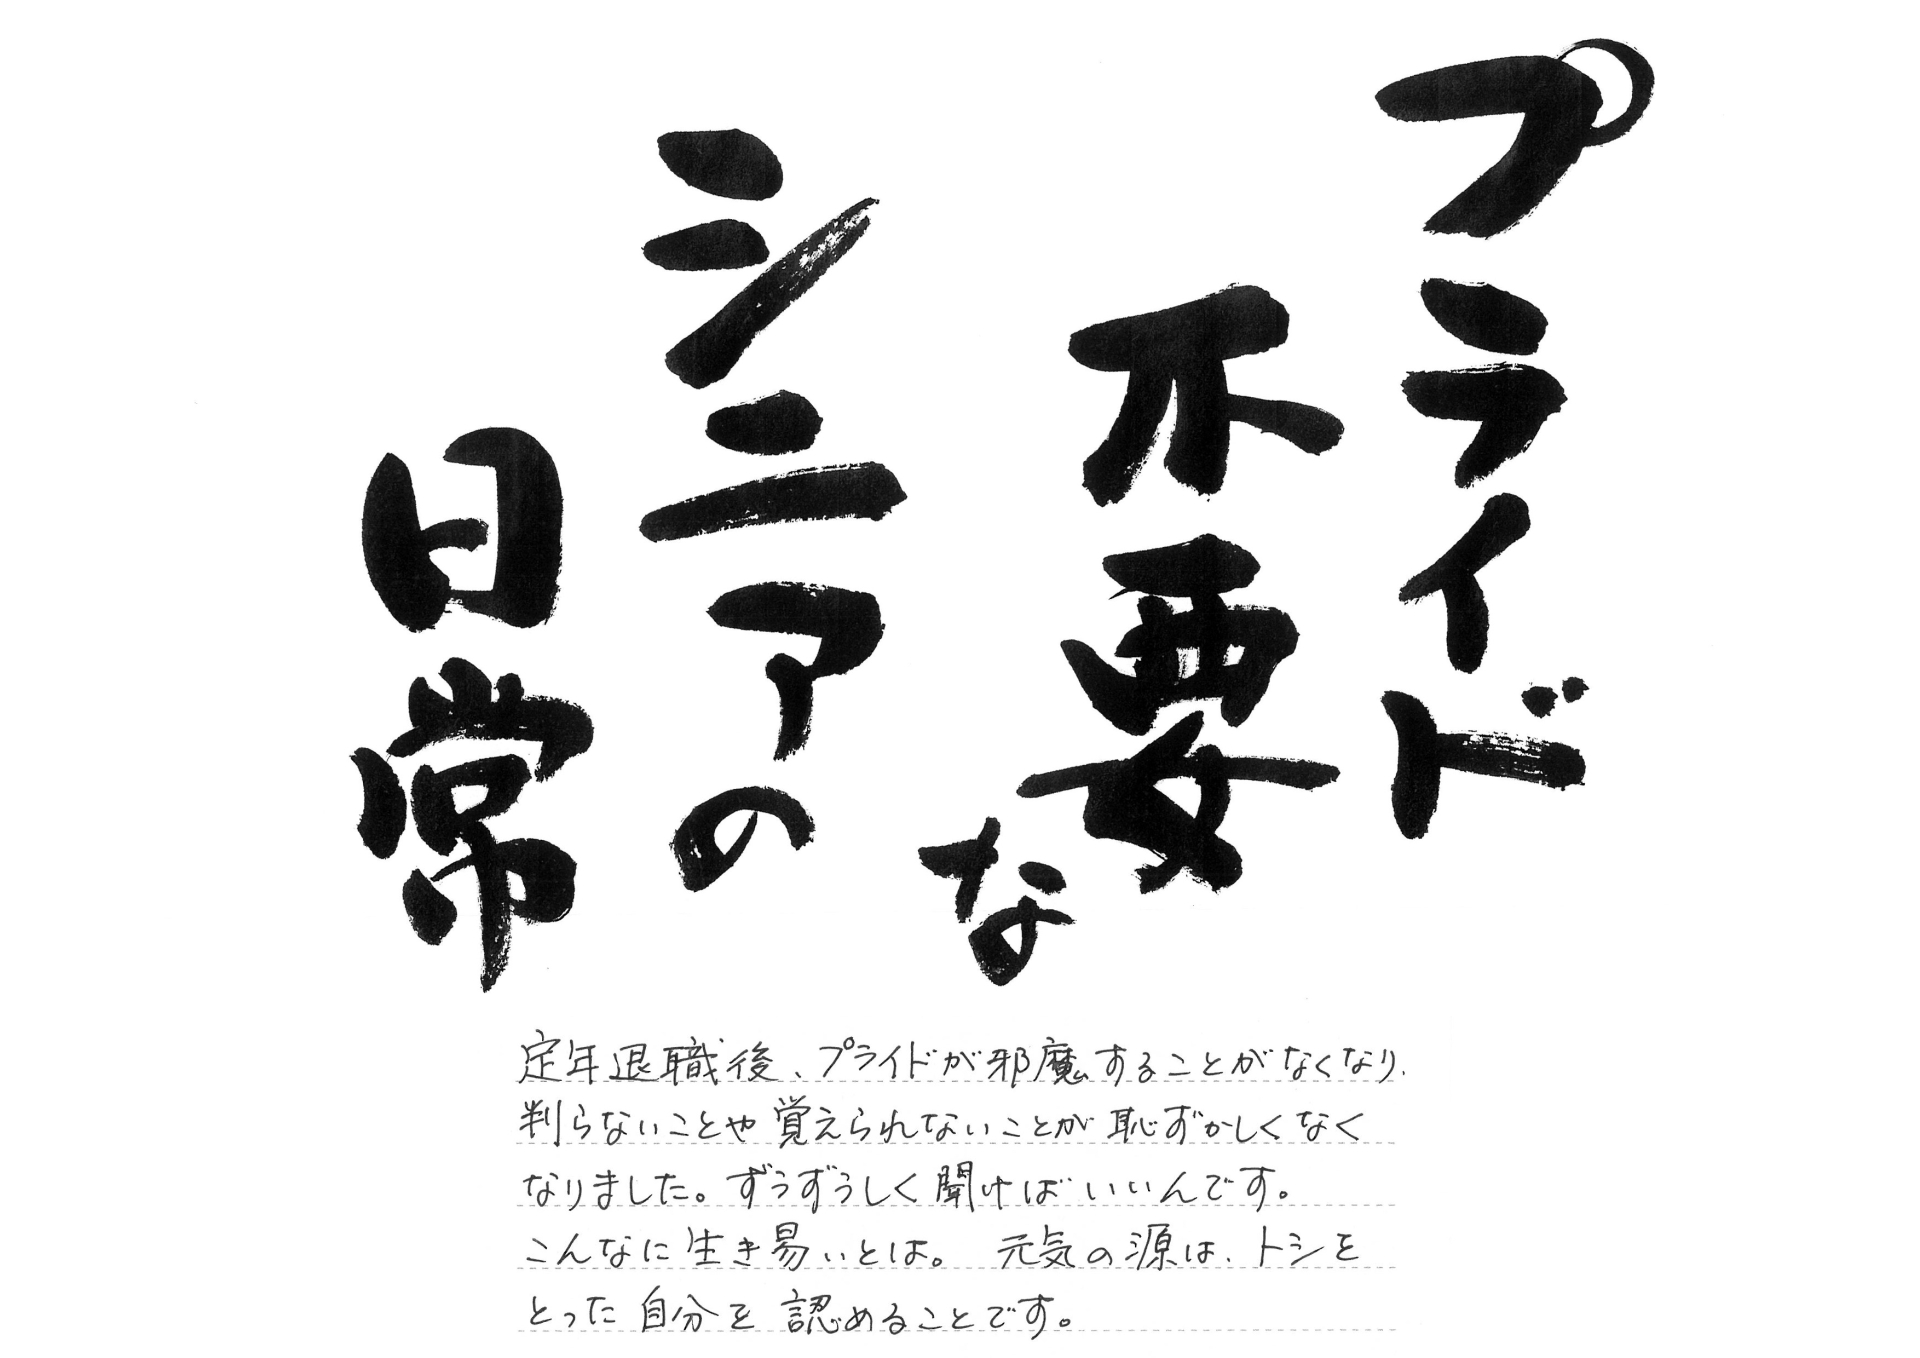 プライド
不要な
シニアの
日常
定年退職後、プライドが邪魔することがなくなり、
判らないことや覚えられないことが恥ずかしくなく
なりました。ずうずうしく聞けばいいんです。
こんなに生き易いとは。 元気の源は、トシを
とった自分を認めることです。